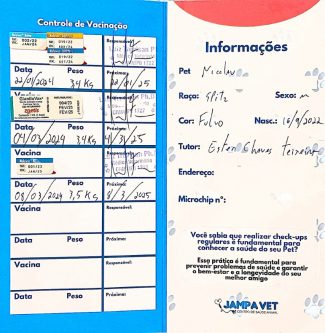 Controle de Vacinação
Responsável:
Data Peso Próxima:
22/01/2024 3,4 Kg 22/01/25
GiardiaVax
004/23
FEV/23
FEV/25
Responsável:
Data Peso Próxima:
04/03/2024 3,4 Kg 4/3/25
Vacina Responsável:
Data Peso Próxima:
08/03/2024 3,5 Kg 8/3/2025
Vacina Responsável:
Data Peso Próxima:
Vacina Responsável:
Data Peso Próxima:
Informações
Pet Nicolau
Raça: SPitz Sexo: m
Cor: Fulvo Nasc.: 16/9/2022
Tutor: Ester Chaves Teixeira
Endereço:
Microchip nº:
Você sabia que realizar check-ups
regulares é fundamental para
conhecer a saúde do seu Pet?
Essa prática é fundamental para
prevenir problemas de saúde e garantir
o bem-estar e a longevidade do seu
melhor amigo
JAMPAVET
CENTRO DE SAÚDE ANIMAL